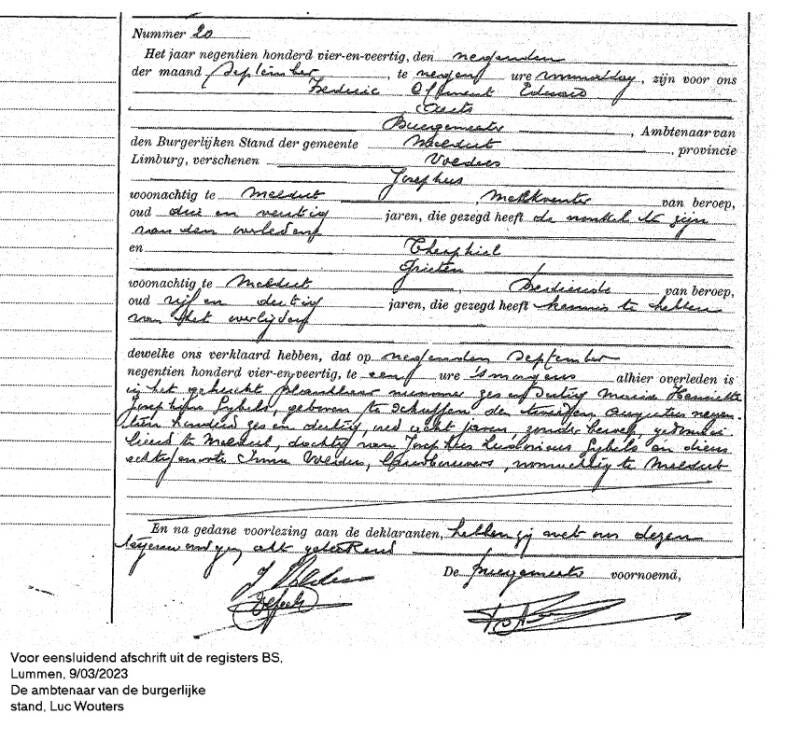 Nummer 20
Het jaar negentien honderd vier-en-veertig, den negenden
der maand september, te negen ure voormiddag, zijn voor ons
Frederic Edward
Burgemeester, Ambtenaar van
den Burgerlijken Stand der gemeente Meldert, provincie
Limburg, verschenen Volders
Josephus
woonachtig te Meldert, van beroep,
oud drie en veertig jaren, die gezegd heeft de nonkel te zijn
van den overledene
en Theophiel
Grieten
woonachtig te Meldert, bediende van beroep,
oud vijf en dertig jaren, die gezegd heeft kennis te hebben
van het overlijden
dewelke ons verklaard hebben, dat op negenden september
negentien honderd vier-en-veertig, te een ure 's morgens alhier overleden is
in het gehucht nummer zes en dertig Maria Henriette
Josephine Gijbels, geboren te Schaffen den augustus negen-
tien honderd zes en dertig, oud acht jaren, zonder beroep, gedomici-
lieerd te Meldert, dochter van Josephus Gijbels en diens
echtgenoote Irma Volders, landbouwers, woonachtig te Meldert
En na gedane voorlezing aan de deklaranten, hebben zij met ons dezen
tegenwoordigen akt geteekend
De Burgemeester voornoemd,
J Volders
Voor eensluidend afschrift uit de registers BS,
Lummen, 9/03/2023
De ambtenaar van de burgerlijke
stand, Luc Wouters